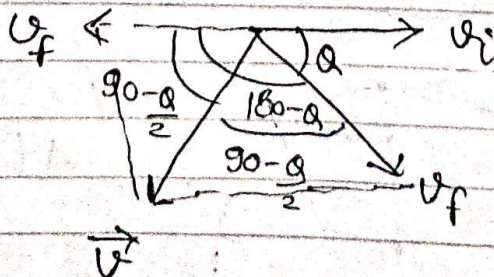 v_f v_i
Q
90-Q/2 180-Q
90-Q/2
v_f
v⃗